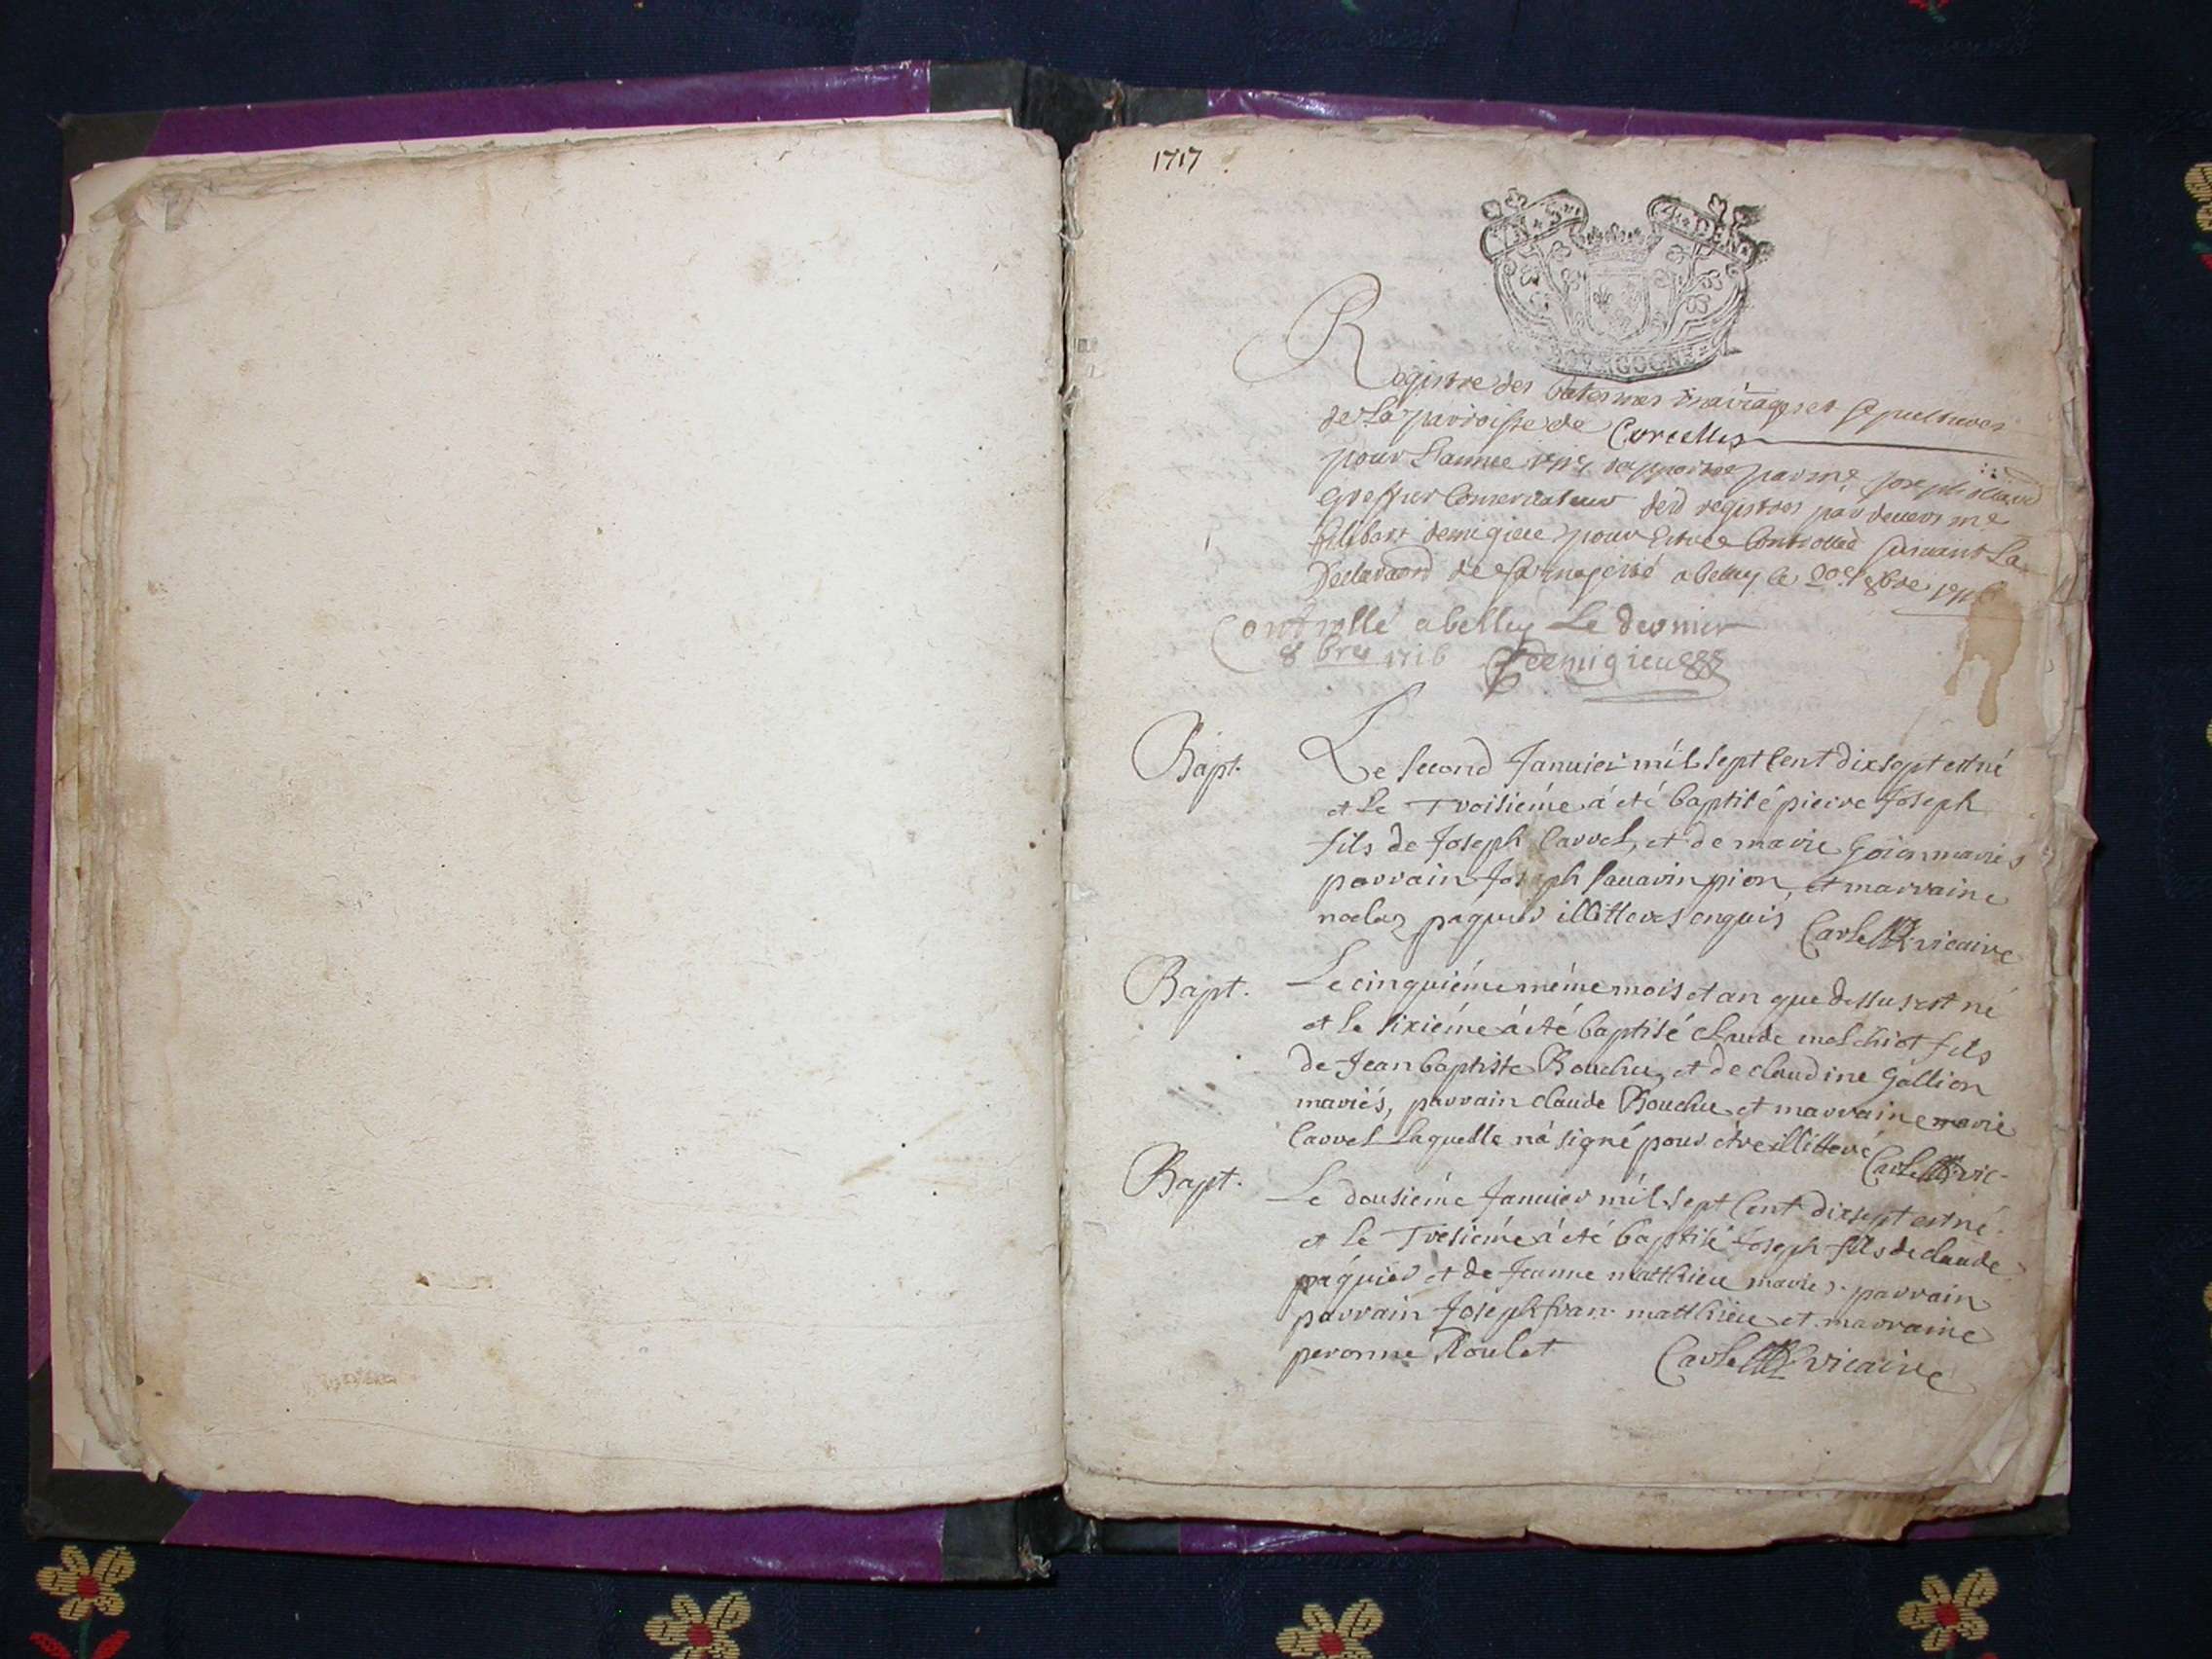 1717
BOURGOGNE
Registre des batesmes mariages et sepultures
de la parroisse de Corcelles
pour Lannee 1717 par me joseph
greffier Conservateur desd registres par devers me
filibert demigieu pour Estre Controllé suivant La
Declaraon de sa majesté a belley le 8bre 1716
Controllé a belley Le dernier
8bre 1716 Demigieu
Bapt. Le second Januier mil sept Cent dixsept est né
et Le Troisiéme á eté baptisé pierre Joseph
fils de Joseph Carrel, et de marie Goion mariés
parrain Joseph sauarin pion, et marraine
paquier illitteres enquis Carle vicaire
Bapt. Le cinquiéme méme mois et an que dessus est né
et le sixiéme á eté baptisé claude melchiot fils
de Jean baptiste Bouchu, et de claudine Gallion
mariés, parrain claude Bouchu et marraine marie
Carrel Laquelle ná signé pour étre illitteré Carle vic-
Bapt. Le dousiéme Januier mil sept Cent dixsept est né
et le Tresiéme á eté baptisé Joseph fils de claude
páquier et de Jeanne matthieu mariés. parrain
parrain Joseph fran. matthieu et marraine
peronne Roulet Carle vicaire